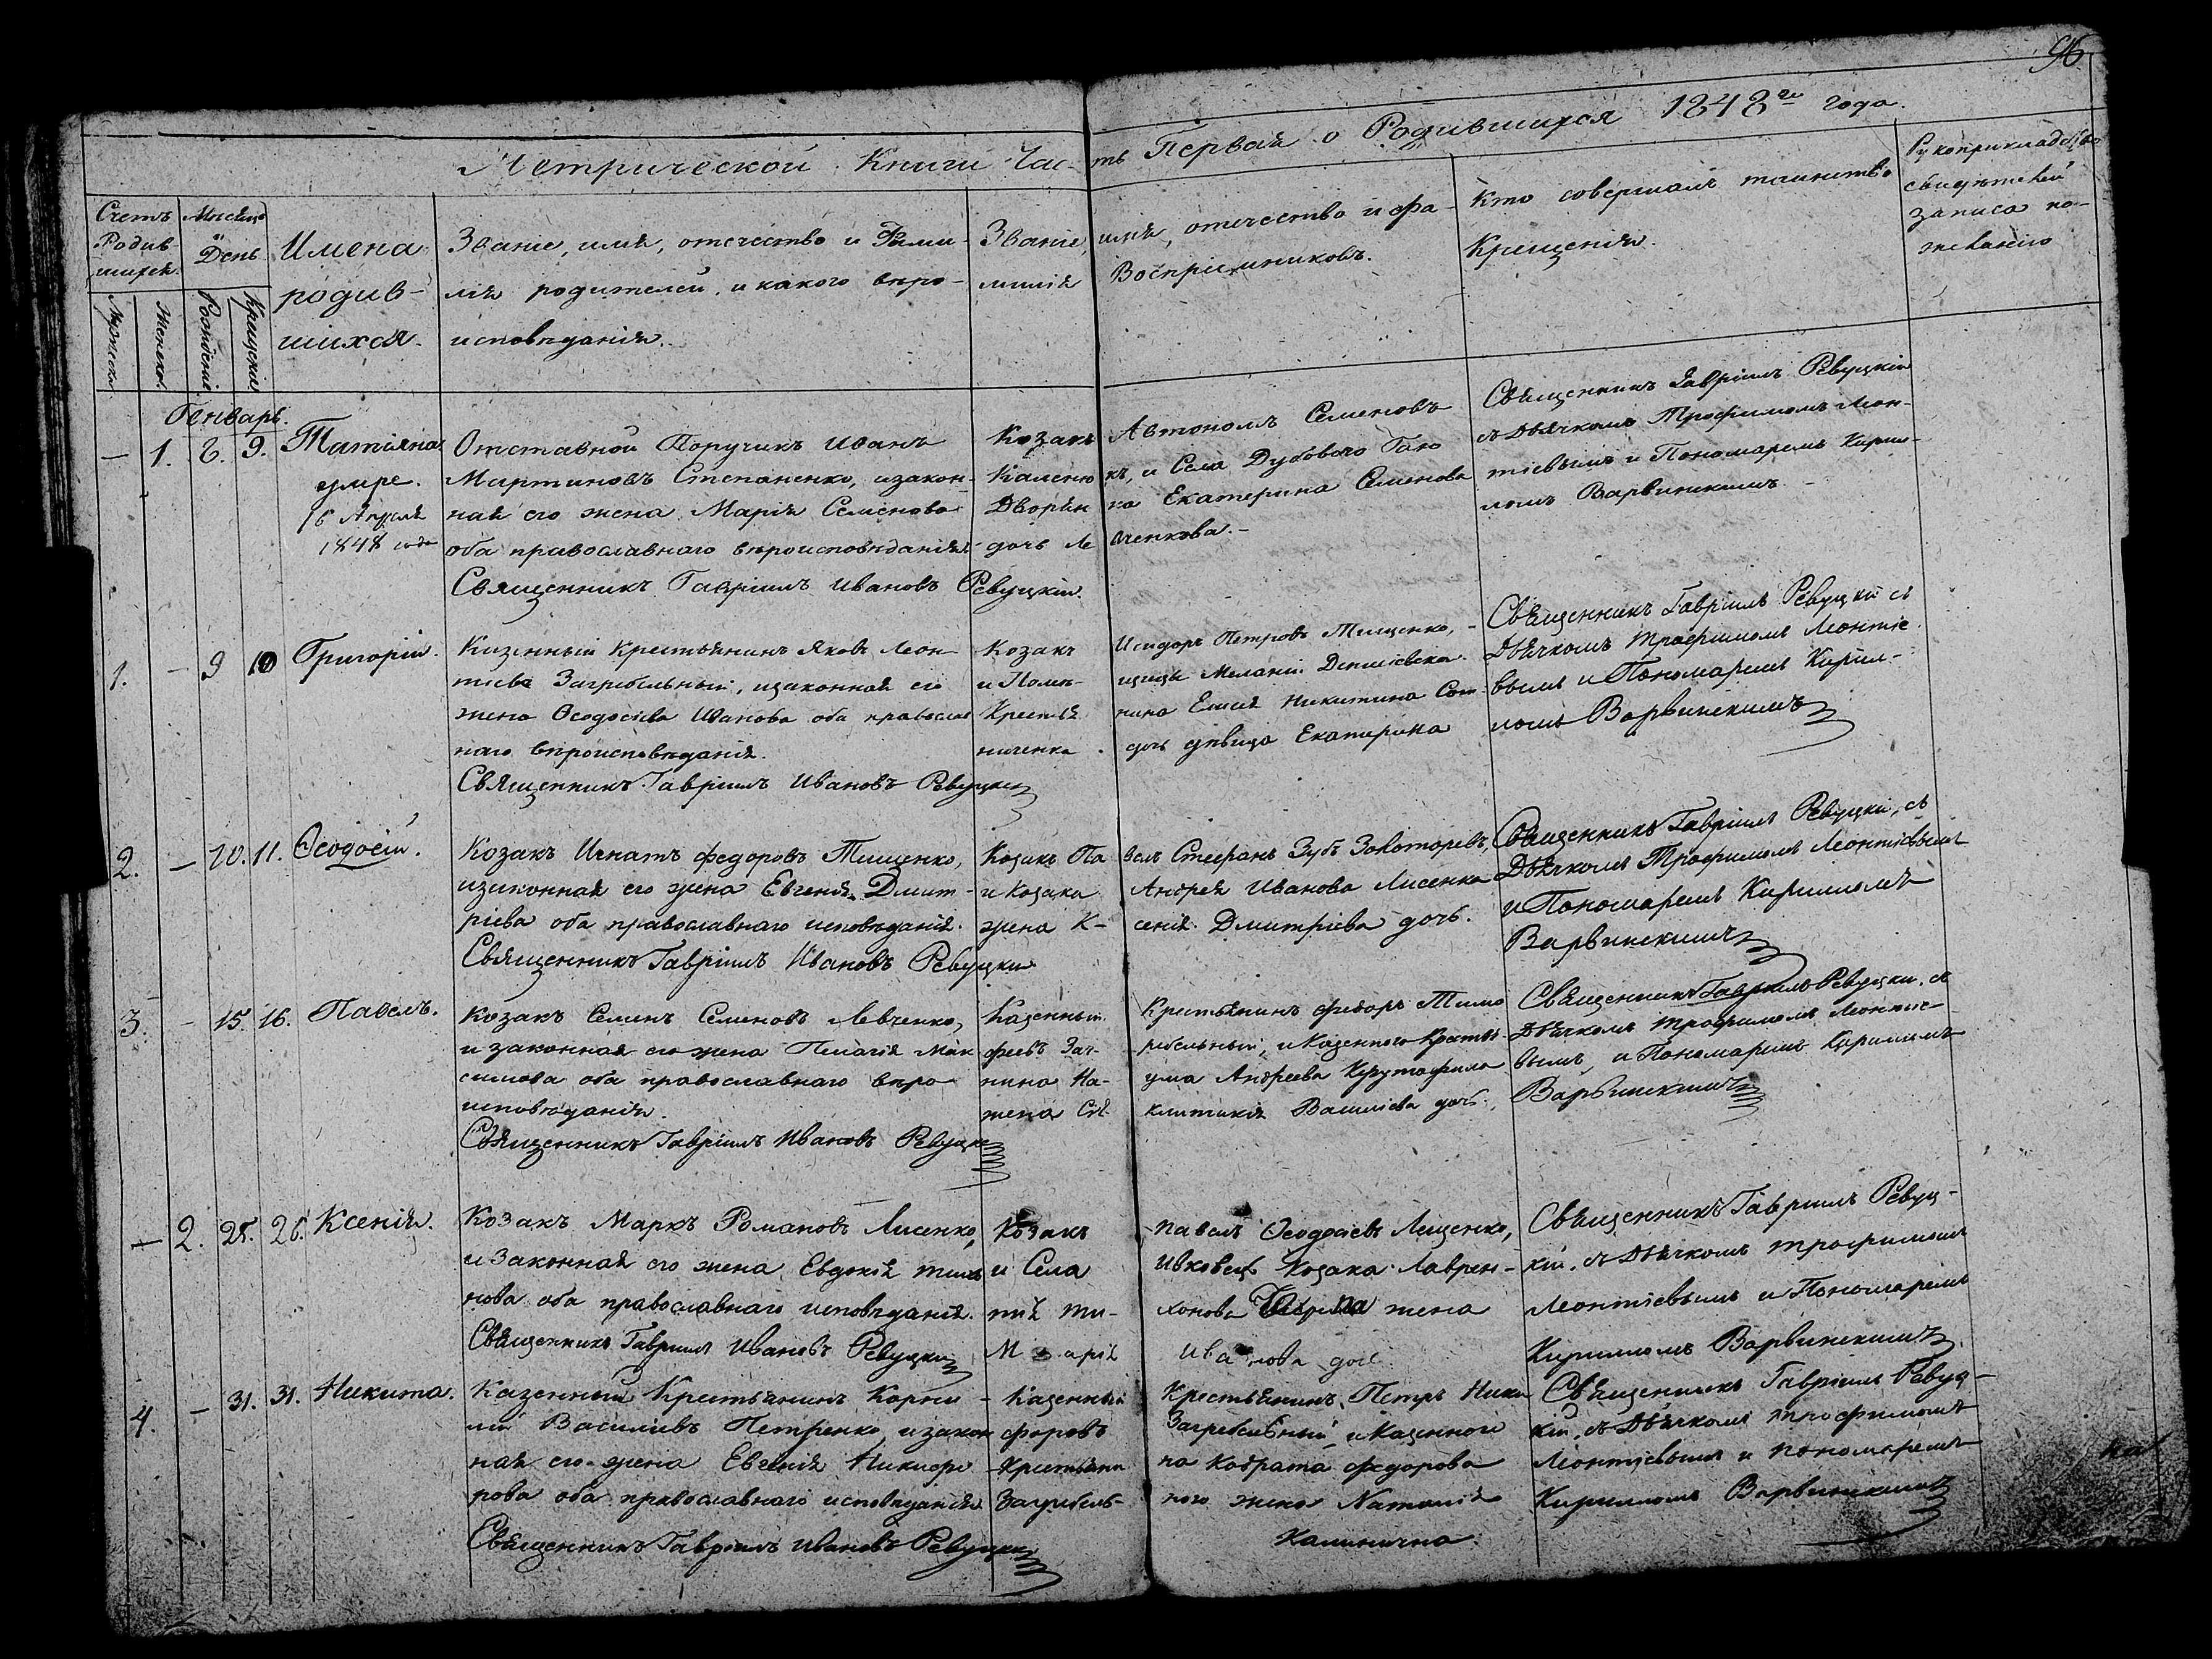 96
Метрической Книги Часть Первая о Родившихся 1848го года.
Счетъ Родившихся
Мужеска
Женска
Месяцъ и День
Рождения
Крещения
Имена родившихся
Званіе, имя, отечество и Фами-
лія родителей, и какого веро-
исповеданія.
Званіе, имя, отечество и фа-
милія Воспріемниковъ.
Кто совершалъ таинство
Крещенія.
Рукоприкладство
свидетелей
записа по-
желанію
Генварь.
— 1. 8. 9. Татіяна
умре.
16 Апреля
1848 года
Отставной Поручикъ Иванъ
Мартиновъ Степаненко, и закон-
ная его жена Марія Семенова
оба православнаго вероисповеданія
Священникъ Гавріилъ Ивановъ Ревуцкій.
Козакъ Автономъ Семеновъ
Каленю къ, и Села Дубового Гаю
Дворян ка Екатерина Семенова
дочь Ле вченкова. –
Священникъ Гавріилъ Ревуцкій
съ Дьячкомъ Трофимомъ Леон-
тіевымъ и Пономаремъ Кирил-
ломъ Варвинскимъ
1. — 9 10 Григорій.
Казенный Крестьянинъ Яковъ Леон-
тіевъ Загребельный, и законная его
жена Феодосіева Иванова оба православ
наго вероисповеданія.
Священникъ Гавріилъ Ивановъ Ревуцкій
Козакъ Исидоръ Петровъ Тищенко,
и Поме- щицы Меланіи
Крестья нина Никитина
ниченка дочь девица Екатерина
Священникъ Гавріилъ Ревуцкій съ
Дьячкомъ Трофимомъ Леонтіе
вымъ и Пономаремъ Кирил-
ломъ Варвинскимъ
2. — 10. 11. Феодосій.
Козакъ Игнатъ Федоровъ Тищенко,
и законная его жена Евгенія Дмит-
ріева оба православнаго исповеданія.
Священникъ Гавріилъ Ивановъ Ревуцкій
Козакъ Па велъ Стефанъ Зубъ Золотаревъ,
и Козака Андрея Иванова Лисенка
жена К- сенія Дмитріева дочь.
Священникъ Гавріилъ Ревуцкій, съ
Дьячкомъ Трофимомъ Леонтіевымъ
и Пономаремъ Кирилломъ
Варвинскимъ
3. — 15. 16. Павелъ.
Козакъ Семенъ Семеновъ Левченко,
и законная его жена Пелагія Мак
симова оба православнаго веро
исповеданія.
Священникъ Гавріилъ Ивановъ Ревуцкій
Казенный Крестьянинъ Федоръ Тимо
феевъ Заг- ребельный, и Казенного Крестья-
нина На- ума Андреева
жена Си- клитикія Василіева дочь.
Священникъ Гавріилъ Ревуцкій, съ
Дьячкомъ Трофимомъ Леонтіе
вымъ, и Пономаремъ Кирилломъ
Варвинскимъ
— 2. 25. 26. Ксенія.
Козакъ Маркъ Романовъ Лисенко,
и Законная его жена Евдокія Тихо
нова оба православнаго исповеданія.
Священникъ Гавріилъ Ивановъ Ревуцкій
Козакъ Павелъ Феодосіевъ Лещенко,
и Села Ивковецъ Козака Лаврен-
тія Ти- хонова жена
Марія Иванова дочь
Священникъ Гавріилъ Ревуц-
кій, съ Дьячкомъ Трофимомъ
Леонтіевымъ и Пономаремъ
Кирилломъ Варвинскимъ
4. — 31. 31. Никита.
Казенный Крестьянинъ Корни-
лій Василіевъ Петренко, и закон
ная его жена Евгенія Никифо
рова оба православнаго исповеданія
Священникъ Гавріилъ Ивановъ Ревуцкій
Казенный Крестьянинъ Петръ Ники
форовъ Загребельный, и Казенного
Крестьяни на Кодрата Федорова
Загребель- ного жена Наталія
Калинична.
Священникъ Гавріилъ Ревуц-
кій, съ Дьячкомъ Трофимомъ
Леонтіевымъ и Пономаремъ
Кирилломъ Варвинскимъ